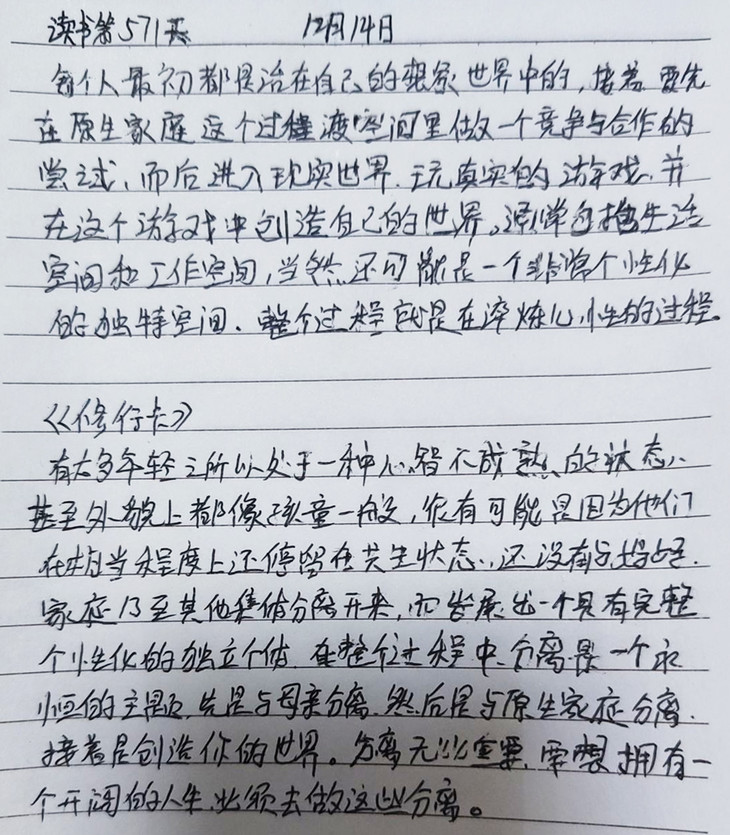 读书第571天 12月14日
每个人最初都是活在自己的想象世界中的,接着要先
在原生家庭这个过渡空间里做一个竞争与合作的
尝试,而后进入现实世界.玩真实的游戏.并
在这个游戏中创造自己的世界。通常包括生活
空间和工作空间,当然还可能是一个非常个性化
的独特空间.整个过程就是在淬炼心性的过程.
《修行卡》
有太多年轻之所以处于一种心智不成熟的状态、
甚至外貌上都像孩童一般,很有可能是因为他们
在相当程度上还停留在共生状态..还没有与妈妈.
家庭乃至其他集体分离开来,而发展出一个具有完整
个性化的独立个体.在整个过程中.分离是一个永
恒的主题.先是与母亲分离.然后是与原生家庭分离.
接着是创造你的世界。分离无比重要.要想拥有一
个开阔的人生.必须去做这些分离。